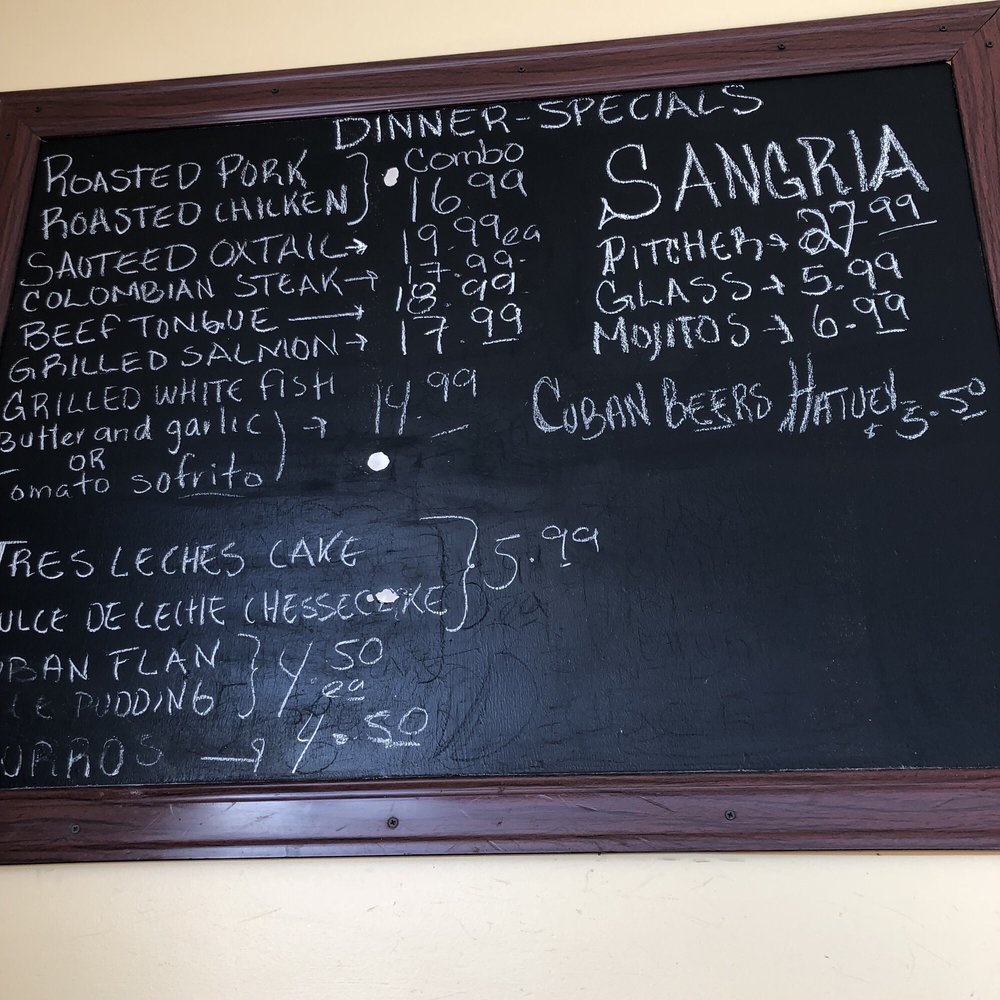 DINNER-SPECIALS
ROASTED PORK
ROASTED CHICKEN
Combo
16.99
SAUTEED OXTAIL → 19.99 ea
COLOMBIAN STEAK → 17.99
BEEF TONGUE → 18.99
GRILLED SALMON → 17.99
GRILLED WHITE FISH
Butter and garlic
OR
Tomato sofrito
→ 14.99
TRES LECHES CAKE
ULCE DE LECHE CHESSECAKE
5.99
ea
BAN FLAN
E PUDDING
4.50
ea
URROS → 4.50
SANGRIA
PITCHER → 27.99
GLASS → 5.99
MOJITOS → 6.99
CUBAN BEERS HATUEY
5.50